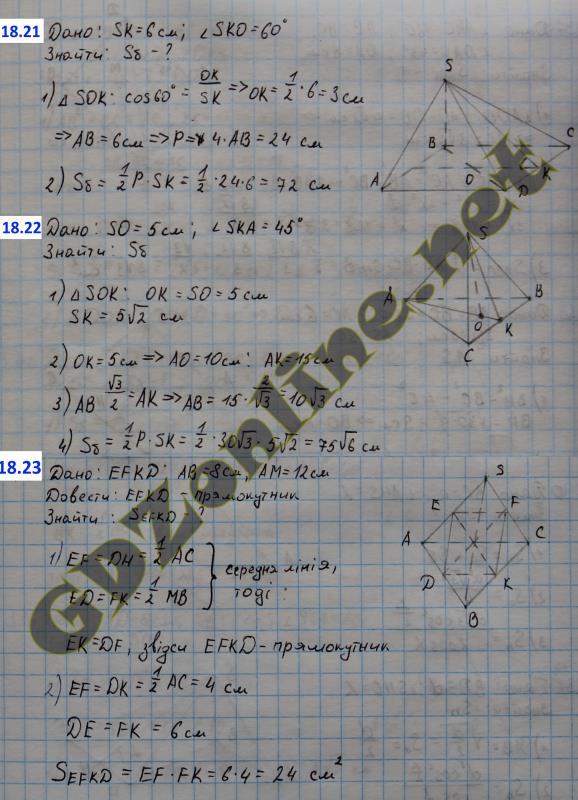 18.21 Дано: SK=6см; ∠SKO=60°
Знайти: Sδ - ?
1) △ SOK: cos60° = OK/SK => OK = 1/2 · 6 = 3 см
=> AB = 6см => P = 4·AB = 24 см
2) Sδ = 1/2 P · SK = 1/2 · 24 · 6 = 72 см
S
B
C
A
O
K
D
18.22 Дано: SO = 5см; ∠SKA = 45°
Знайти: Sδ
1) △SOK: OK = SO = 5 см
SK = 5√2 см
2) OK = 5см => AO = 10см; AK = 15см
3) AB √3/2 = AK => AB = 15 · 2/√3 = 10√3 см
4) Sδ = 1/2 P · SK = 1/2 · 30√3 · 5√2 = 75√6 см
S
A
B
O
K
C
18.23 Дано: EFKD; AB = 8см, AM = 12см
Довести: EFKD - прямокутник
Знайти: SEFKD - ?
1) EF = DH = 1/2 AC
ED = FK = 1/2 MB
середня лінія,
тоді:
EK = DF, звідси EFKD - прямокутник
2) EF = DK = 1/2 AC = 4 см
DE = FK = 6 см
SEFKD = EF · FK = 6 · 4 = 24 см²
S
E
F
A
C
D
K
B
GDZonline.net